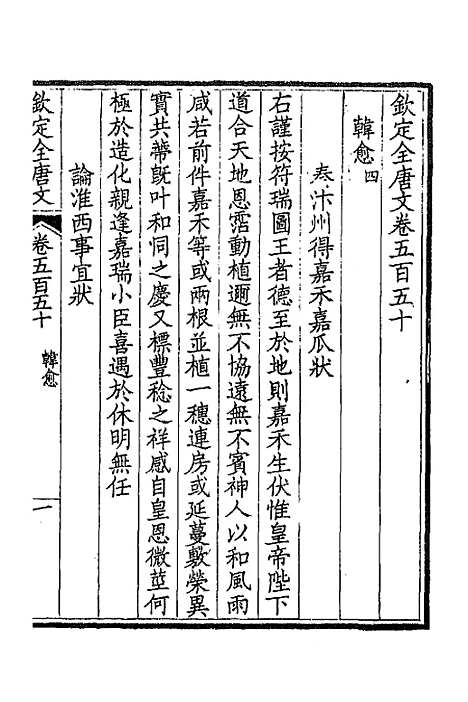 欽定全唐文卷五百五十
韓愈四
奏汴州得嘉禾嘉瓜狀
右謹按符瑞圖王者德至於地則嘉禾生伏惟皇帝陛下
道合天地恩霑動植邇無不協遠無不賓神人以和風雨
咸若前件嘉禾等或兩根並植一穗連房或延蔓敷榮異
實共蔕旣叶和同之慶又標豐稔之祥感自皇恩微莖何
極於造化親逢嘉瑞小臣喜遇於休明無任
論淮西事宜狀
欽定全唐文
卷五百五十
韓愈
一